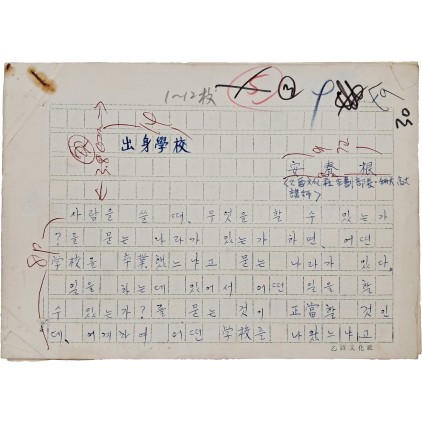 1~12枚
30
出身學校
安春根
(乙酉文化社 企劃部長·
講師)
사람을 쓸 때, 무엇을 할 수 있는가
?를 묻는 나라가 있는가 하면, 어떤
學校를 卒業했느냐고 묻는 나라가 있다.
일을 하는데 있어서 어떤 일을 할
수 있는가?를 묻는 것이 正當할 것인
데, 어쨌 어떤 學校를 나왔느냐고
乙酉文化社